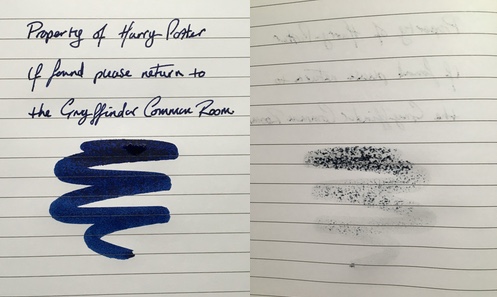 Property of Harry Potter
if found please return to
the Gryffindor Common Room